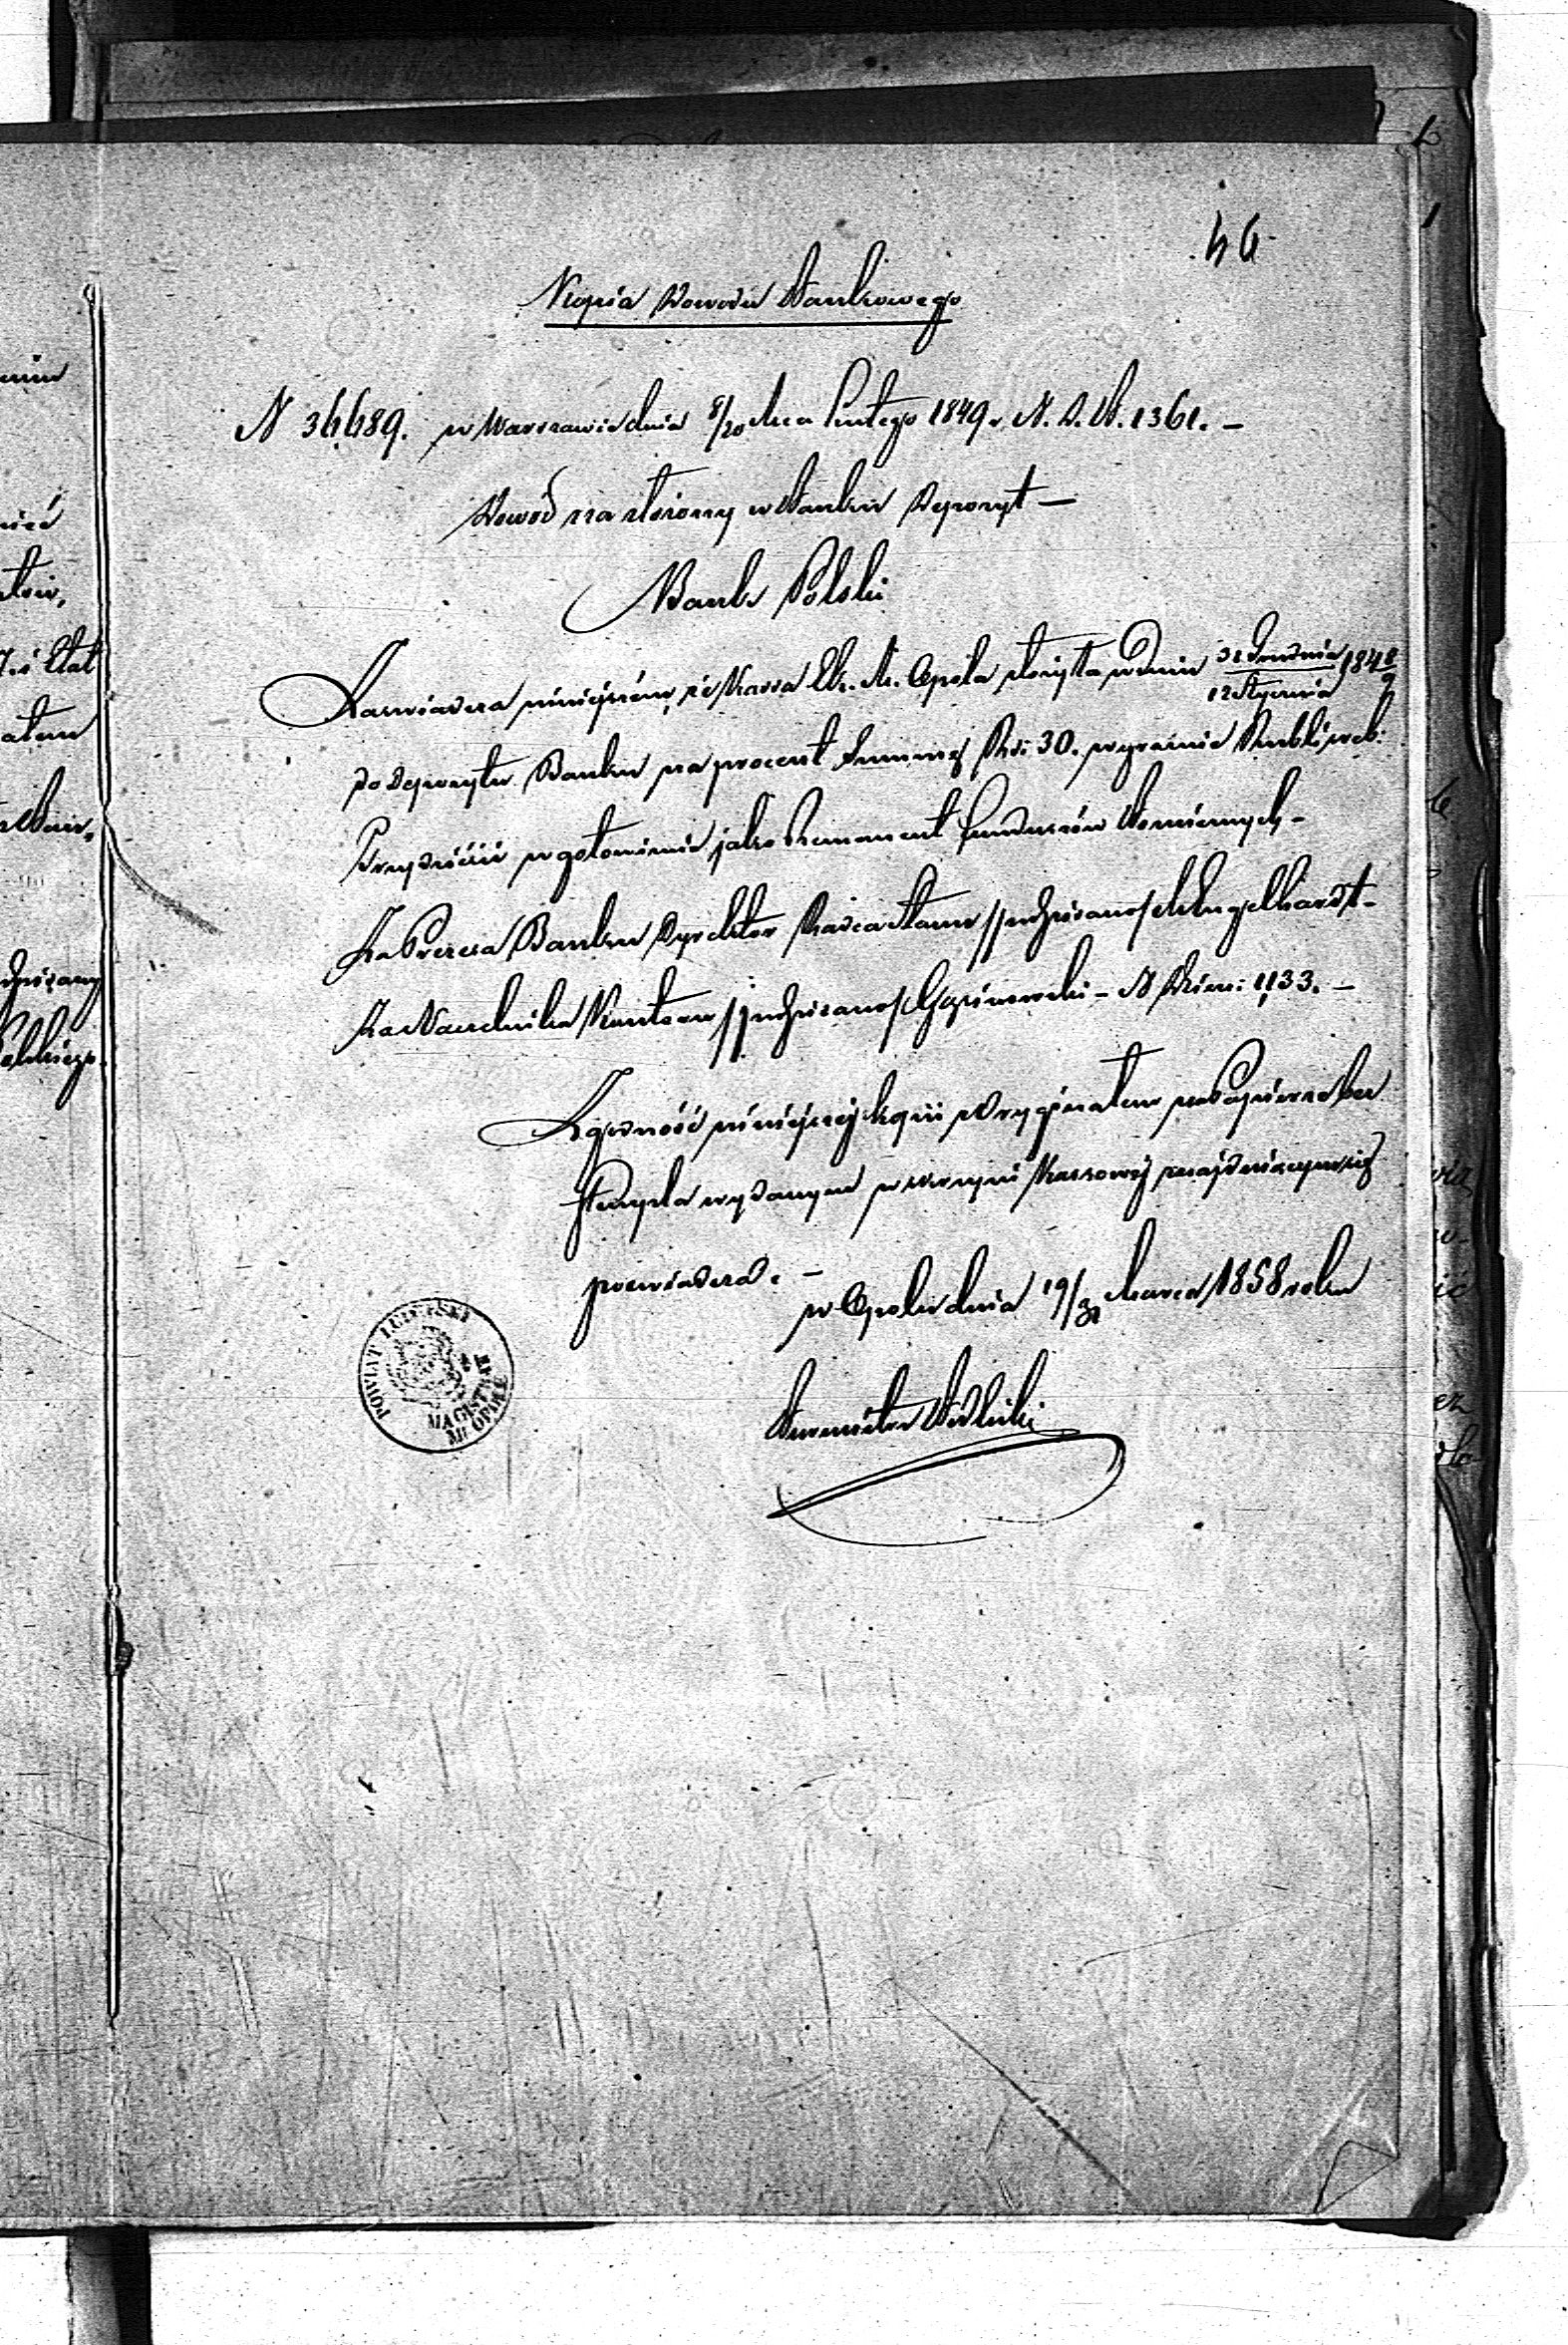 46
Kopia Dowodu Bankowego
N 34689. w Warszawie dnia 8/20 Mca Lutego 1849 r. N. D. B. 1361. –
Dowód na złożony w Banku Depozyt –
Bank Polski
Zaświadcza niniejszém, że Kassa Ek. M. Opola złożyła w dniu 31 Grudnia / 12 Stycznia 1848/9
do depozytu Banku na procent Summę Rsr: 30. wyraźnie Rubli sreb:
Trzydzieści w gotowiźnie jako Remanent funduszów
Za Prezesa Banku Dyrektor Radca Stanu /podpisano/ M Engelhardt –
Za Naczelnika Kontoru /podpisano/ – N Dzien: 1133. –
Zgodność niniejszéj kopii z Oryginałem na Papierze bez
stempla wydanym w skrzyni Kassowéj znajdującym się
poświadcza. –
w Opolu dnia 19/31 Marca 1858 roku
Burmistrz
POWIAT LUBELSKI
MAGISTRAT
M. OPOLE